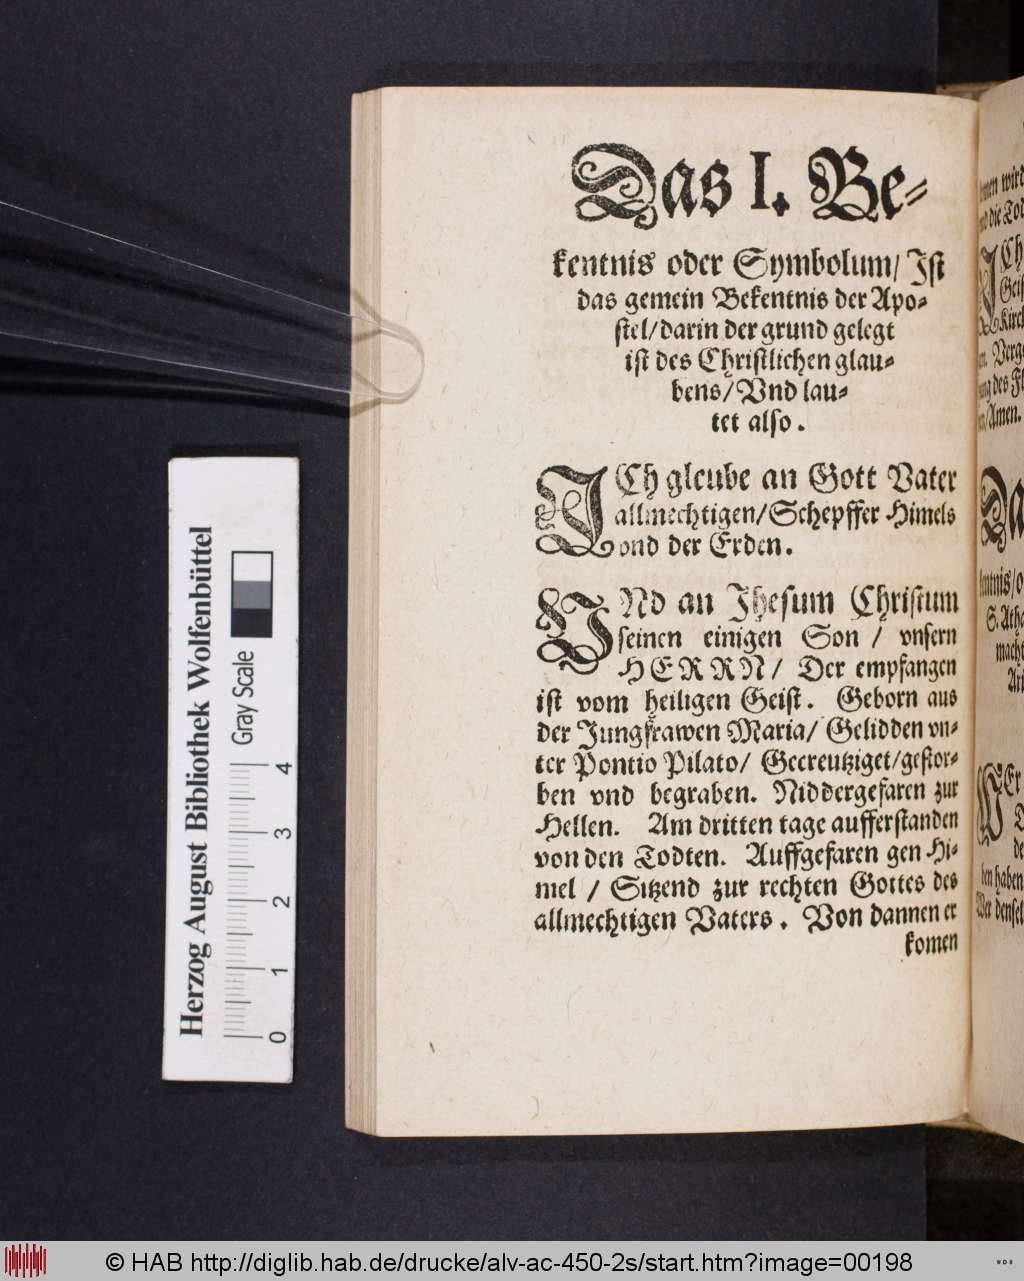 Das I. Be⸗
kentnis oder Symbolum/ Ist
das gemein Bekentnis der Apo⸗
stel/darin der grund gelegt
ist des Christlichen glau⸗
bens/ Vnd lau⸗
tet also.
ICh gleube an Gott Vater
allmechtigen/Schepffer Himels
vnd der Erden.
VNd an Jhesum Christum
seinen einigen Son / vnsern
HERRN/ Der empfangen
ist vom heiligen Geist. Geborn aus
der Jungfrawen Maria/ Gelidden vn⸗
ter Pontio Pilato/ Gecreutziget/gestor⸗
ben vnd begraben. Niddergefaren zur
Hellen. Am dritten tage aufferstanden
von den Todten. Auffgefaren gen Hi⸗
mel / Sitzend zur rechten Gottes des
allmechtigen Vaters. Von dannen er
komen
wird
die
Ch
des
/Amen.
Da
S.
macht
Er
ben haben
Wer
Herzog August Bibliothek Wolfenbüttel
Gray Scale
0 1 2 3 4
© HAB http://diglib.hab.de/drucke/alv-ac-450-2s/start.htm?image=00198